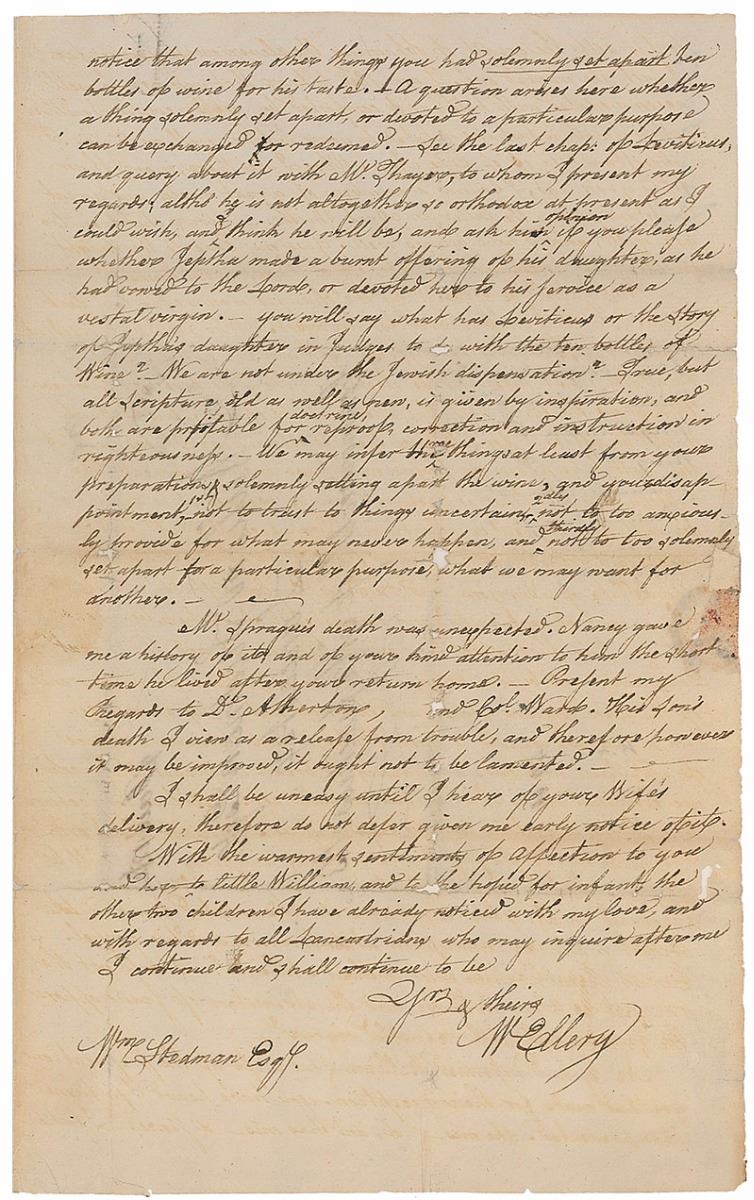 notice that among other things you had solemnly set apart ten
bottles of wine for his taste. – A question arises here whether
a thing solemnly set apart, or devoted to a particular purpose
can be exchanged or redeemed. – See the last chap: of Leviticus,
and query about it with Mr. Thayer, to whom I present my
regards, altho he is not altogether so orthodox at present as I
could wish, and think he will be, and ask his opinion if you please
whether Jeptha made a burnt offering of his daughter, as he
had vowed to the Lord, or devoted her to his service as a
vestal virgin. – you will say what has Leviticus or the story
of Jeptha's daughter in Judges to do with the ten bottles of
Wine? – We are not under the Jewish dispensation? – True, but
all scripture, old as well as new, is given by inspiration, and
both are profitable for doctrine, reproof, correction and instruction in
righteousness. – We may infer three things at least from your
preparation, & solemnly setting apart the wine, and your disap-
pointment, 1st. not to trust to things uncertain, not to too anxious-
ly provide for what may never happen, and thirdly not to too solemnly
set apart for a particular purpose, what we may want for
another. –
Mr. Sprague's death was unexpected. Nancy gave
me a history of it, and of your kind attention to him the short
time he lived after your return home. – Present my
Regards to Dr. Atherton, and Col. Ward. His son's
death I view as a release from trouble, and therefore however
it may be improved, it ought not to be lamented. –
I shall be uneasy until I hear of your Wife's
delivery, therefore do not defer given me early notice of it.
With the warmest sentiments of affection to you
and hers to little William, and to the hoped for infant, the
other two children I have already noticed with my love, and
with regards to all Lancastrians who may inquire after me
I continue and shall continue to be
Yrs & theirs
W Ellery
Wm Stedman Esqr.